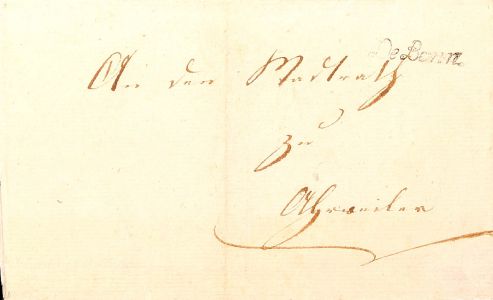 De Bonn.
An den Stadtrath
zu
Ahrweiler